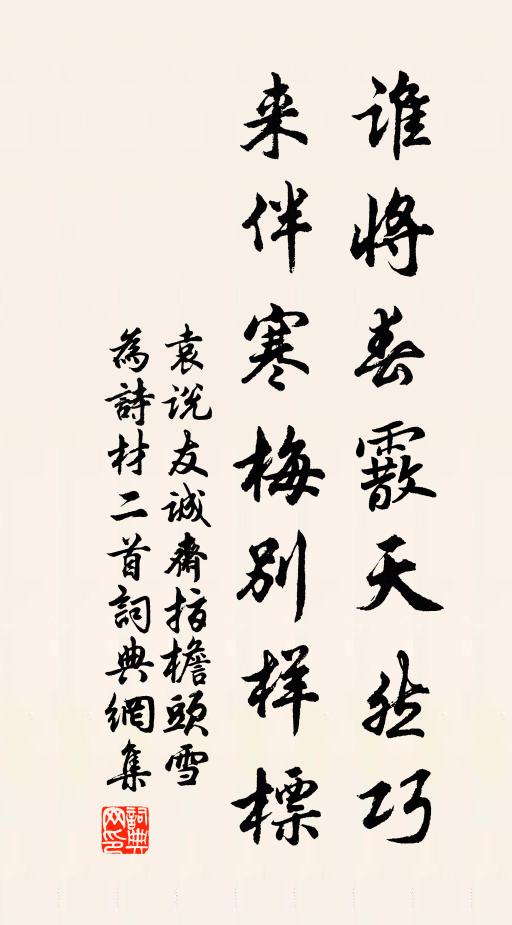 谁将春霰天然巧
来伴寒梅别样标
袁说友诚斋指檐頭雪
為詩材二首詞典網集
詞典
网印